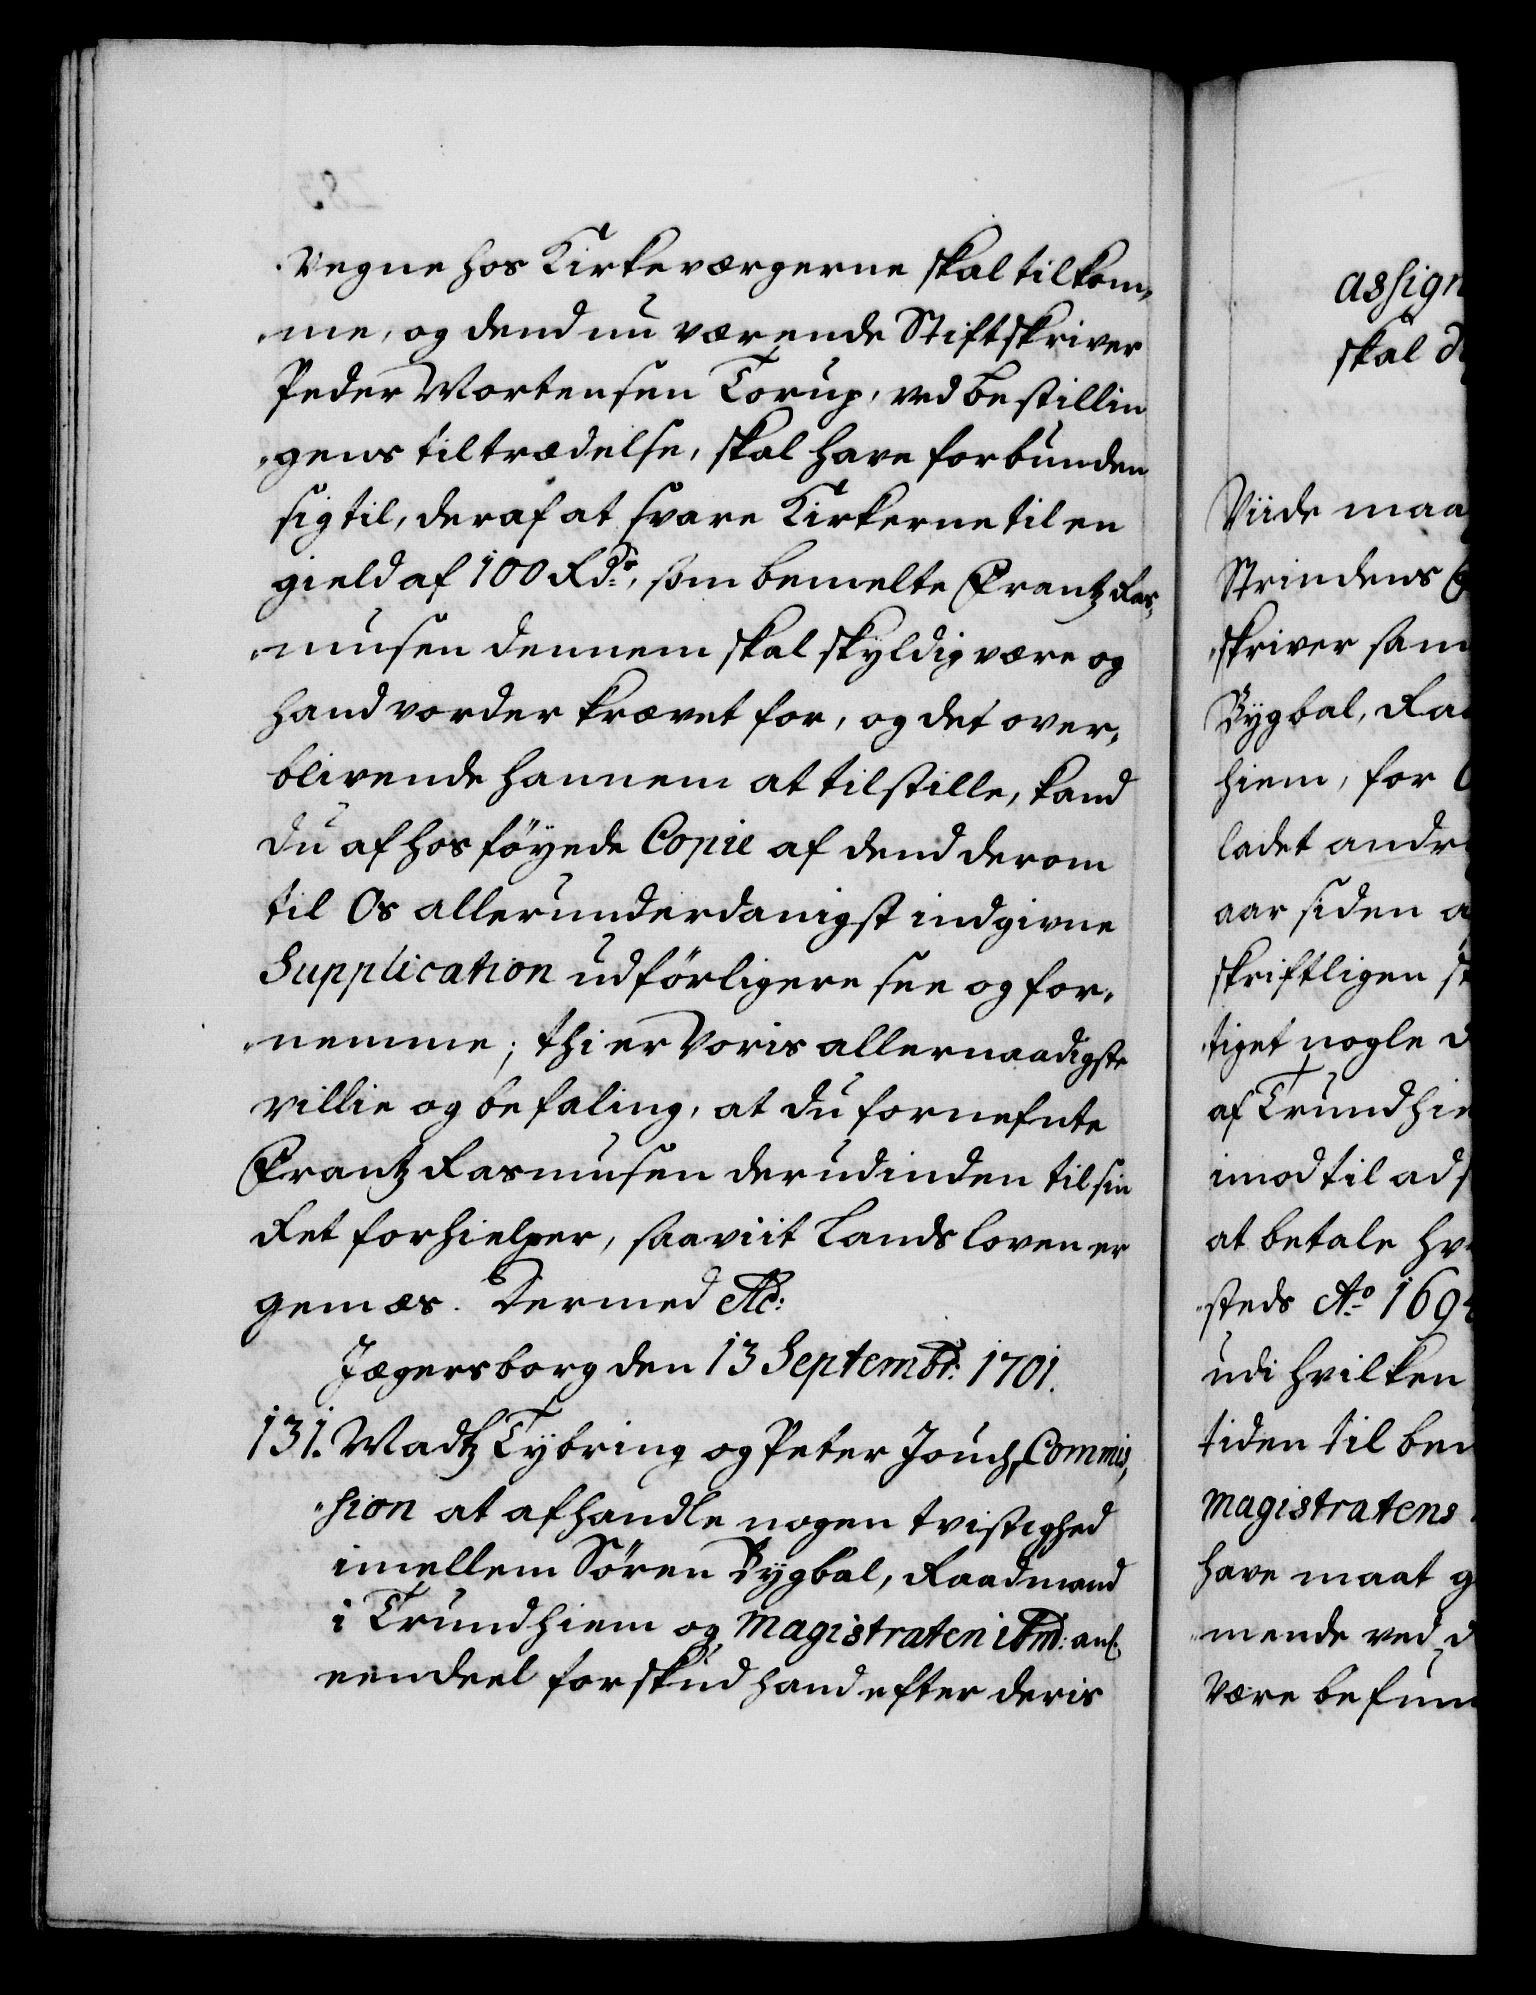 vegne hos Kirkeværgerne skal tilkom,
,,me, og dend nu værende Stiftskriver
Peder Mortensen Torup, ved bestillin
,,gens tiltrædelse, skal have forbunden
sig til, deraf at svare Kirkerne til en
gield af 100 Rdr:, som bemelte Frantz Ras,
,,musen dennem skal skyldig være og
hand vorder krævet for, og det over,
blivende hannem at tilstille, kand
du af hosföyede Copie af dend derom
til Os allerunderdanigst indgivne
Supplication udförligere see og for,
,,nemme; thi er Voris allernaadigste
villie og befaling, at du fornefnte
Frantz Rasmusen derudinden til sin
Ret forhielper, saaviit Landsloven er
gemæs. Dermed etc:
Jægersborg den 13 Septembr: 1701.
131. Madtz Tybring og Peter Jouch, Commis,
,,sion at afhandle nogen tvistighed
imellem Sören Bygbal, Raadmand
i Trundhiem og Magistraten ibm: anl:
eendeel forskud hand efter deris
assign
skal d
Viide maa
Strindens
,,skriver sam
Bygbal, Raa
hiem, for
ladet andr
aar siden a
skriftligen
,,tiget nogle d
af Trundhie
imod til ad
at betale hv
,,steds Ao 169
udi hvilken
tiden til be
Magistratens
have maat g
,,mende ved d
være befun